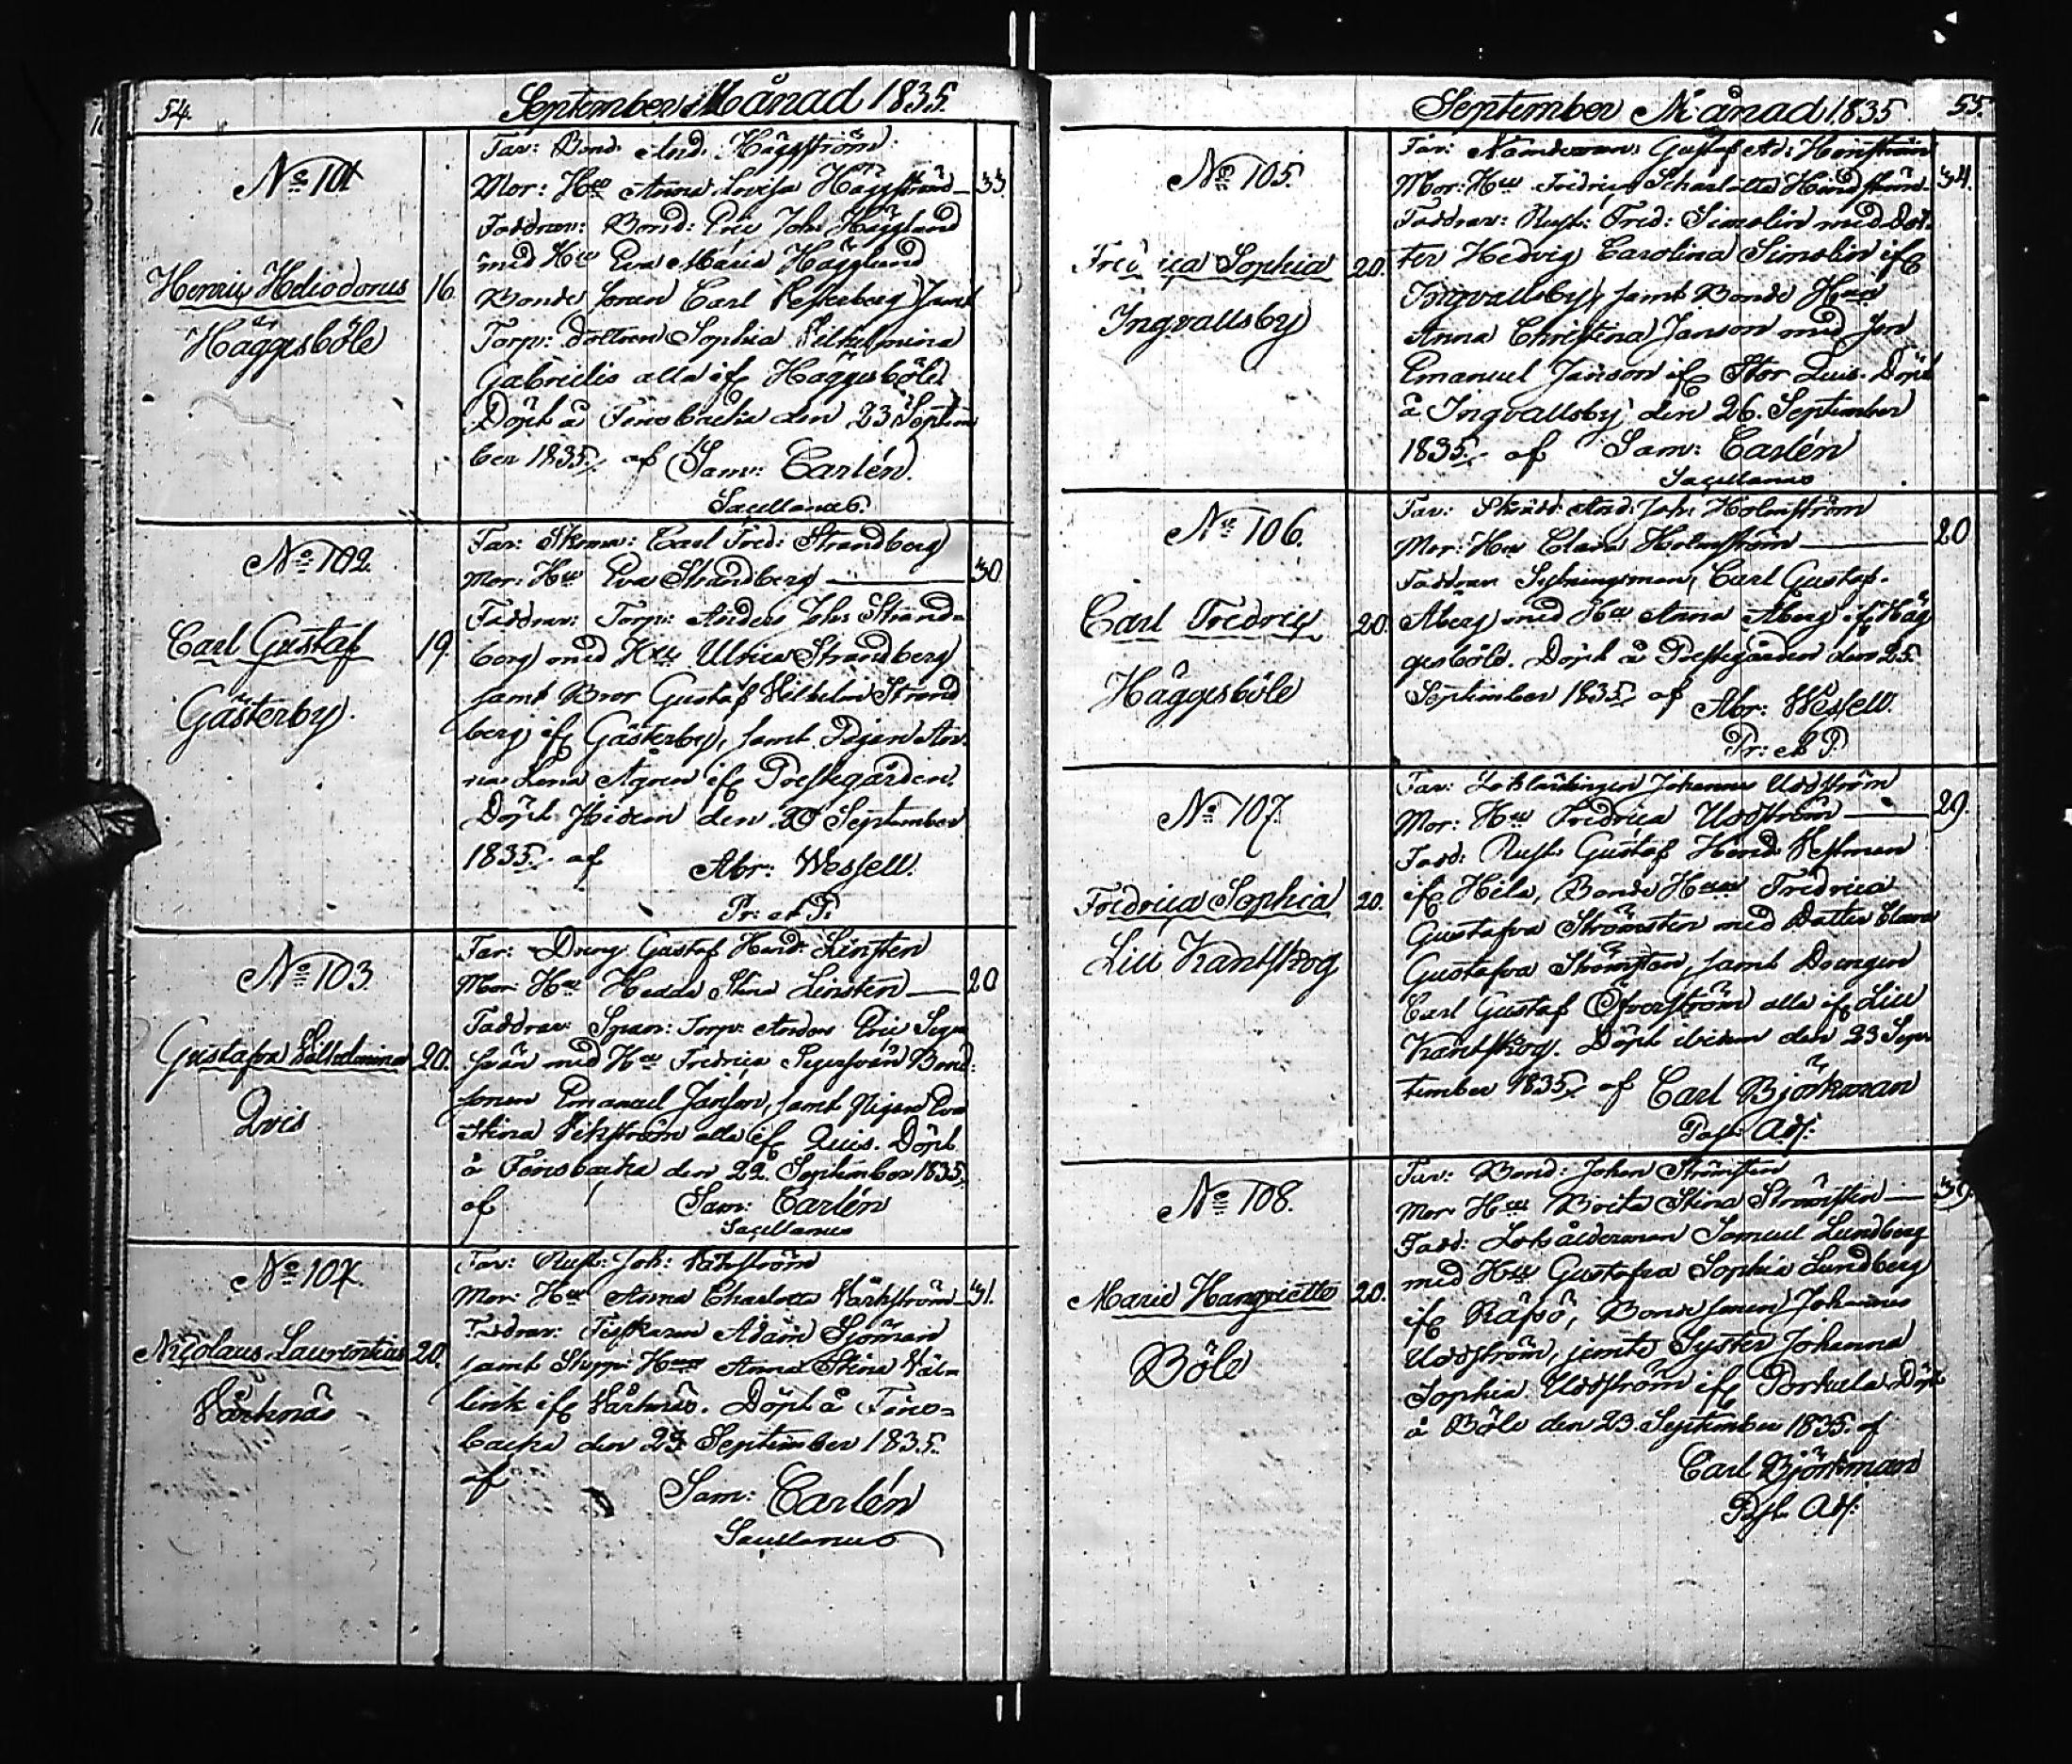 54.
September Månad 1835.
No 101
Henric Heliodorus
Häggesböle
16.
Far: Bond. And. Häggström.
Mor: Hu Anna Lovisa Häggström — 33.
Faddrar: Bond: Eric Joh. Hägglund
med Hu Eva Maria Hägglund
Bonde sonen Carl Vesterberg, samt
Torp: dottren Sophia Vilhelmina
Gabrielis alla ifr Häggesböle
Döpt å Finsbacka den 23 Septem
ber 1835 af Sam: Carlén.
Sacellanus.
No 102.
Carl Gustaf
Gästerby.
19.
Far: Skom: Carl Fred: Strandberg
Mor: Hu Eva Strandberg — 30
Faddrar: Torp: Anders Joh. Strand-
berg med Hu Ulrica Strandberg
samt Bror Gustaf Vilhelm Strand
berg ifr Gästerby, samt Pigan An-
na Lena Ågren ifr Prestegården.
Döpt den 20 September
1835 af Abr: Wessell.
Pr: et P.
No 103
Gustafva Vilhelmina
Qvis
20.
Far: Dreng Gustaf Hend: Linsten
Mor: Hu Hedda Stina Linsten — 20
Faddrar: Torp: Anders Eric Seger
svän med Hu Fredrica Segersvän Bond:
sonen Emanuel Janson, samt Pigan Eva
Stina Vikström alla ifr Quis. Döpt
å Finsbacka den 22. September 1835
af Sam: Carlén
Sacellanus
No 104.
Nicolaus Laurentius
Vårknäs
20.
Far: Rust: Joh: Vårkström
Mor: Hu Anna Charlotta Vårkström — 31.
Faddrar: Adam Sjöman
samt Hu Anna Stina Väl-
link ifr Vårknäs. Döpt å Fins-
backa den 23 September 1835.
af Sam: Carlén
Sacellanus
September Månad 1835
55.
No 105.
Fredrica Sophia
Ingvallsby
20.
Far: Nämdeman Gustaf Ad: Hemström
Mor: Hu Fredrica Scharlotta — 34.
Faddrar: Rust: Fred: Simolin med Dot-
ter Hedvig Carolina Simolin ifr
Ingvallsby, samt Bonde Hu
Anna Christina Janson med son
Emanuel Janson ifr Stor Quis. Döpt
å Ingvallsby den 26. September
1835 af Sam: Carlén
Sacellanus
No 106.
Carl Fredric
Häggesböle
20.
Far: Skrädd: And: Joh: Holmström
Mor: Hu Clara Holmström — 20
Faddrar Carl Gustaf
Åberg med Hu Anna Åberg ifr Häg
gesböle. Döpt å Prestegården den 25.
September 1835 af Abr: Wessell.
Pr: et P.
No 107.
Fredrica Sophia
Lill Kantskog
20.
Far: Johannes Uddström
Mor: Hu Fredrica Uddström — 29.
Fadd: Rust: Gustaf Hend: Vestman
ifr Hila, Bonde Hu Fredrica
Gustafva Strömsten med Dotter Clara
Gustafva Strömsten, samt Drengen
Carl Gustaf Öfverström alla ifr Lill
Kantskog. Döpt ibidem den 23 Sep-
tember 1835 af Carl Björkman
Past: Adj:
No 108.
Maria Hangrietta
Böle
20.
Far: Bond: Johan Strömsten
Mor Hu Brita Stina Strömsten —
Fadd: Lotsålderman Samuel Lundberg
med Hu Gustafva Sophia Lundberg
ifr Räfsö, Bonde sonen Johannes
Uddström, jemte Syster Johanna
Sophia Uddström ifr Porkela. Döpt
å Böle den 23. September 1835. af
Carl Björkman
Past. Adj: